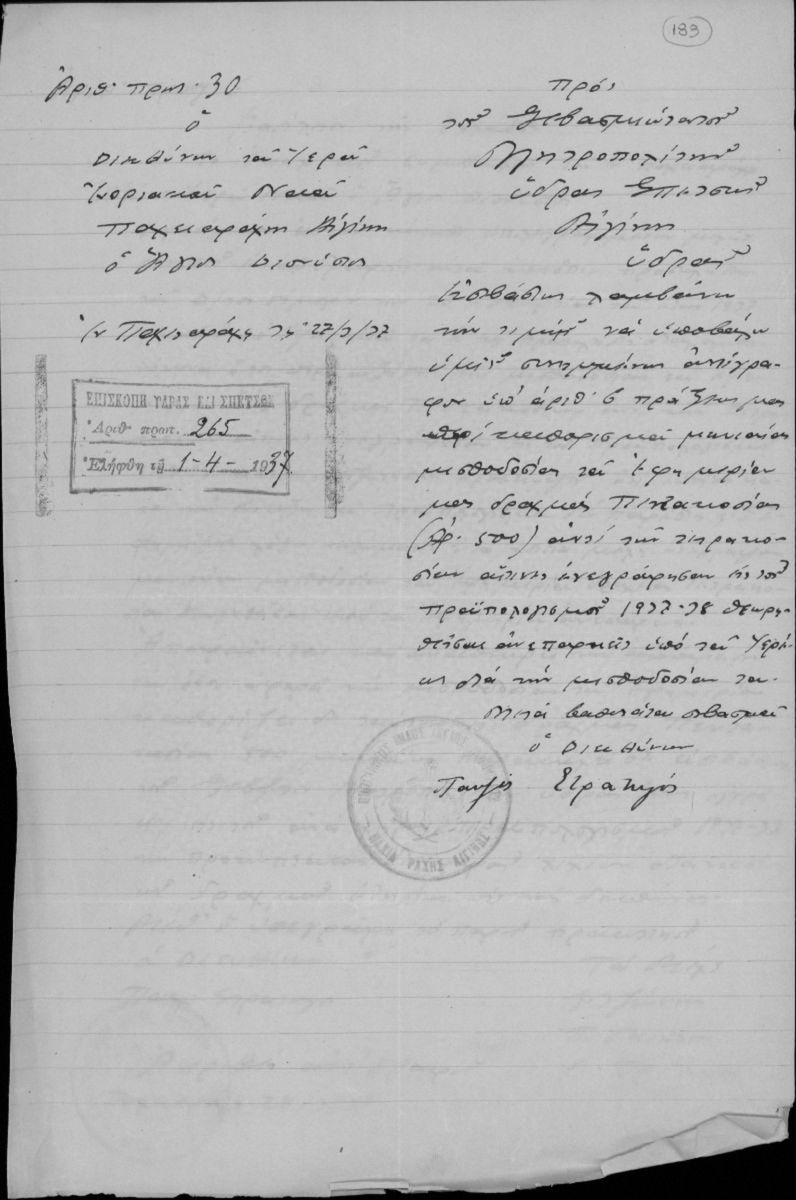 183
Ἀριθ. πρωτ. 30
Ὁ
Διευθύνων τοῦ Ἱεροῦ
Ἐνοριακοῦ Ναοῦ
Παχειαράχης Αἰγίνης
ὁ Ἅγιος Διονύσιος
Ἐν Παχειαράχῃ τῇ 27/3/37
ΕΠΙΣΚΟΠΗ ΥΔΡΑΣ ΚΑΙ ΣΠΕΤΣΩΝ
Ἀριθ. πρωτ. 265
Ἐλήφθη τῇ 1-4-1937
Πρός
τὸν Σεβασμιώτατον
Μητροπολίτην
Ὕδρας Σπετσῶν
Αἰγίνης
Ὕδραν
Εὐσεβάστως λαμβάνω
τὴν τιμὴν νὰ ὑποβάλω
ὑμῖν συνημμένως ἀντίγρα-
φον ὑπ' ἀριθ. 6 πράξεώς μας
περὶ καθορισμοῦ μηνιαίας
μισθοδοσίας τοῦ Ἐφημερίου
μας δραχμάς Πεντακοσίας
(Δρ. 500) ἀντὶ τῶν τετρακο-
σίων αἵτινες ἀνεγράφησαν εἰς τὸν
προϋπολογισμὸν 1937-38 θεωρη-
θεῖσαι ἀνεπαρκεῖς ὑπὸ τοῦ Ἱερέ-
ως διὰ τὴν μισθοδοσίαν του.
Μετὰ βαθυτάτου σεβασμοῦ
ὁ Διευθύνων
Στρατηγός
ΠΑΧΕΙΑ ΡΑΧΗΣ ΑΙΓΙΝΗΣ